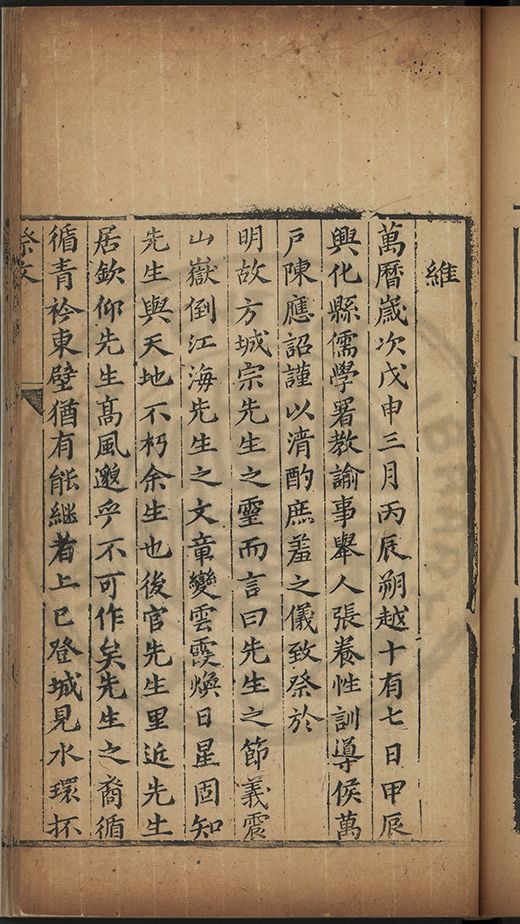 維
萬曆歲次戊申三月丙辰朔越十有七日甲辰
興化縣儒學署教諭事舉人張養性訓導侯萬
戶陳應詔謹以清酌庶羞之儀致祭於
明故方城宗先生之靈而言曰先生之節義震
山嶽倒江海先生之文章變雲霞煥日星固知
先生與天地不朽余生也後官先生里近先生
居欽仰先生高風邈乎不可作矣先生之裔循
循青衿東壁猶有能繼者上巳登城見水環抔
祭文